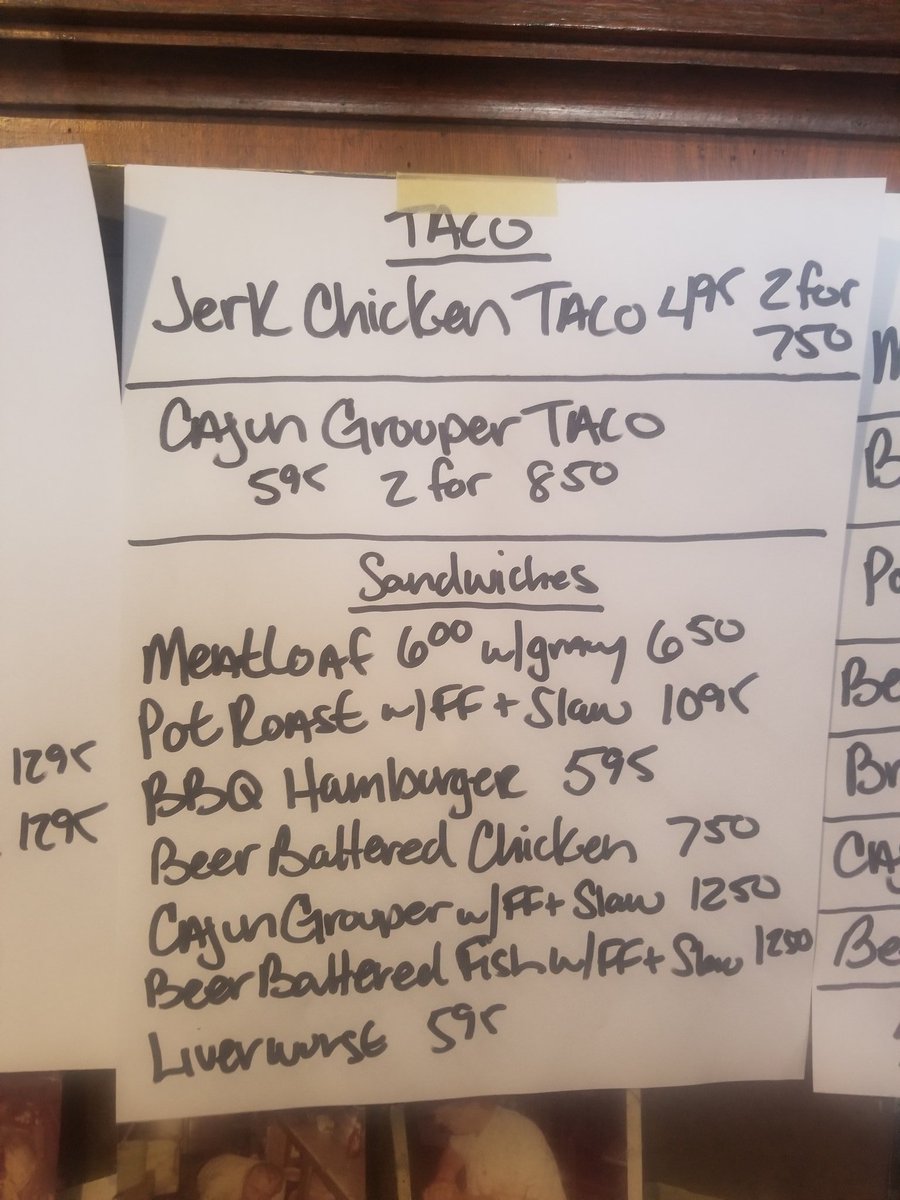 TACO
Jerk Chicken TACO 495 2 for
750
Cajun Grouper TACO
595 2 for 850
Sandwiches
Meatloaf 600 w/gravy 650
Pot Roast w/FF + Slaw 1095
BBQ Hamburger 595
Beer Battered Chicken 750
Cajun Grouper w/FF+ Slaw 1250
Beer Battered Fish w/FF+ Slaw 1250
Liverwurst 595
1295
1295
M
B
Po
Be
Br
CAj
Be